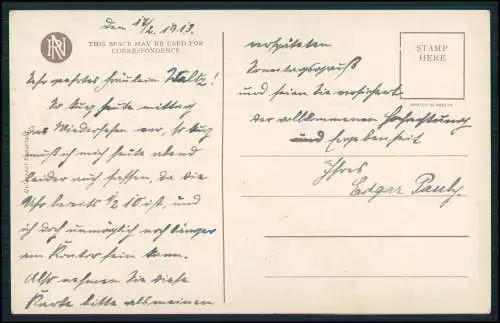 den 12/2. 1913.
RN
THIS SPACE MAY BE USED FOR
CORRESPONDENCE
Sehr geehrtes Fräulein
So kurz heute mittag
das Wiedersehen war, so kurz
muß ich mich heute abend
leider auch fassen, da die
Uhr bereits ½ 10 ist, und
ich doch unmöglich noch länger
im Kontor sein kann.
Also nehmen Sie diese
Karte bitte als meinen
verspäteten
Sonntagsgruß
und seien Sie versichert
der vollkommenen Hochachtung
und Ergebenheit
Ihres
Edgar
STAMP
HERE